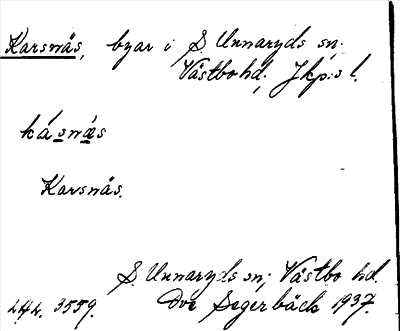 Karsnäs, byar i S. Unnaryds sn.
Västbo hd. Jkp:s l.
kásnä̀s
Karsnäs.
S. Unnaryds sn; Västbo hd.
LAL. 3559. Ove Segerbäck 1937.